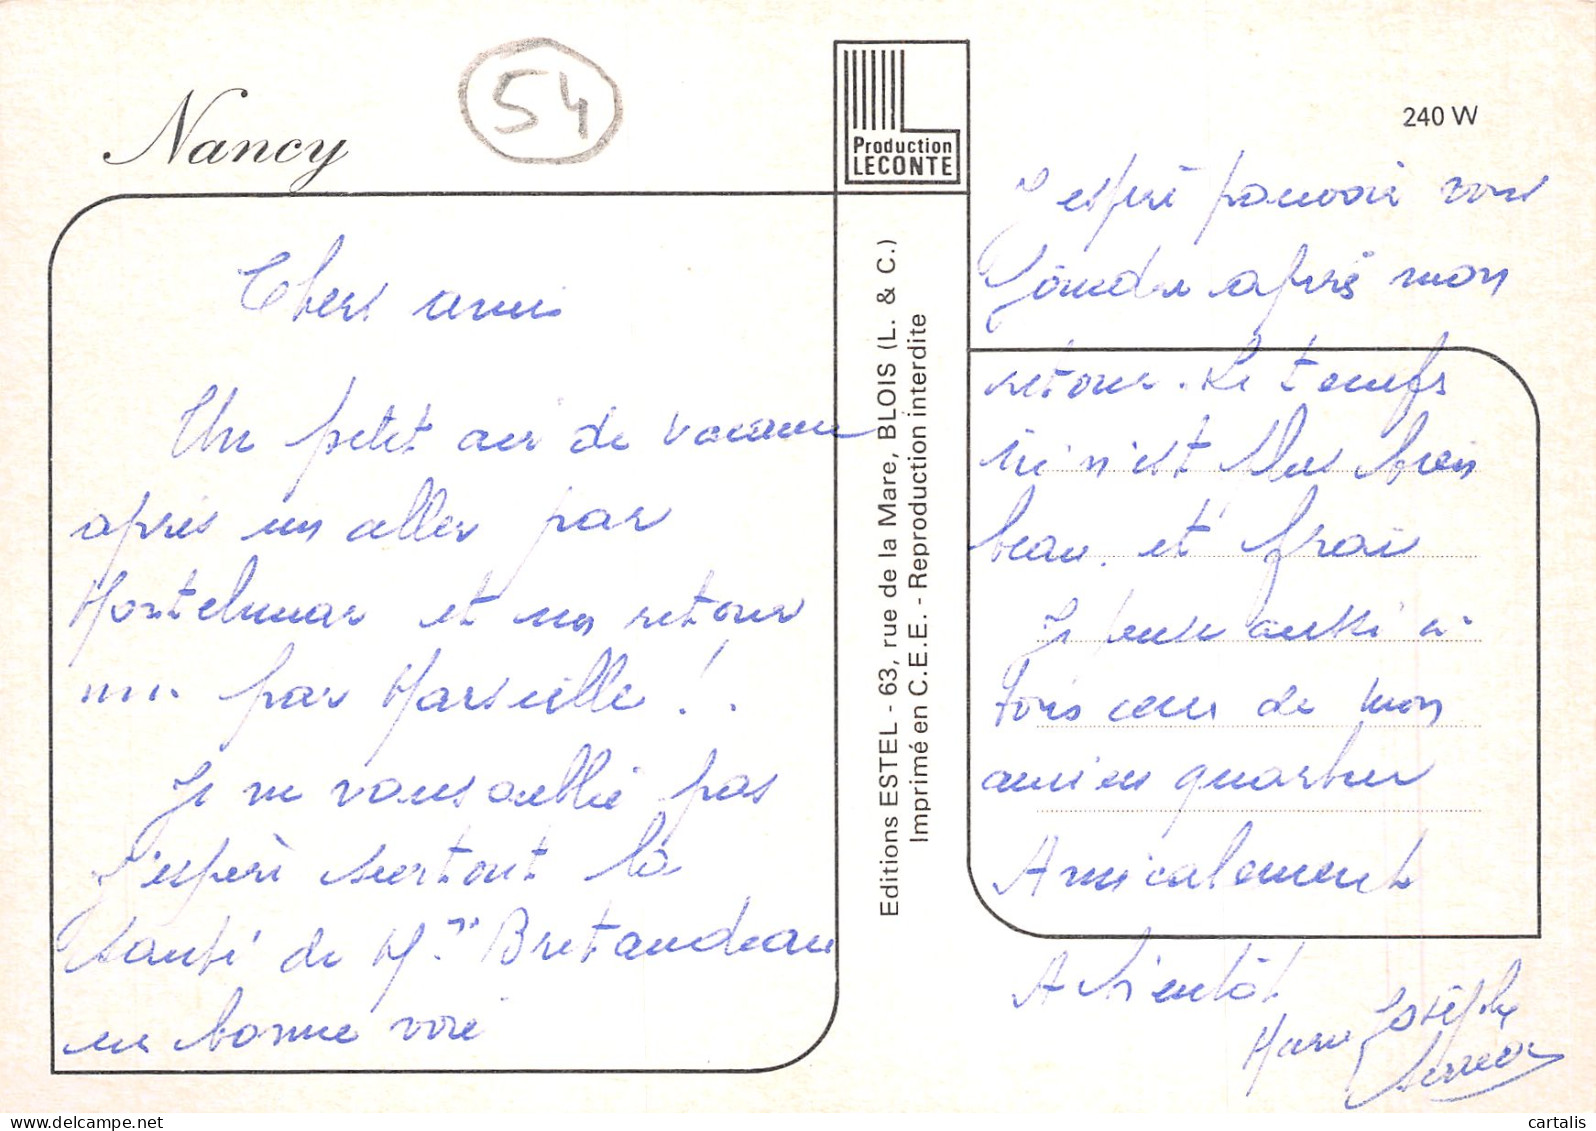 Nancy
54
Production
LECONTE
240 W
Chers amis
Un petit air de vacances
après un aller par
Montelimar et un retour
par Marseille ! .
Je ne vous oublie pas
J'espère surtout la
santé de Mme Bretaudeau
en bonne voie
Editions ESTEL - 63, rue de la Mare, BLOIS (L. & C.)
Imprimé en C.E.E. - Reproduction interdite
J espère pouvoir vous
joindre après mon
retour. Le temps
ici n'est plus bien
beau. et frais
Je pense aussi à
tous ceux de mon
ancien quartier
Amicalement
A bientôt
Marie Josèphe
cartalis
delcampe.net